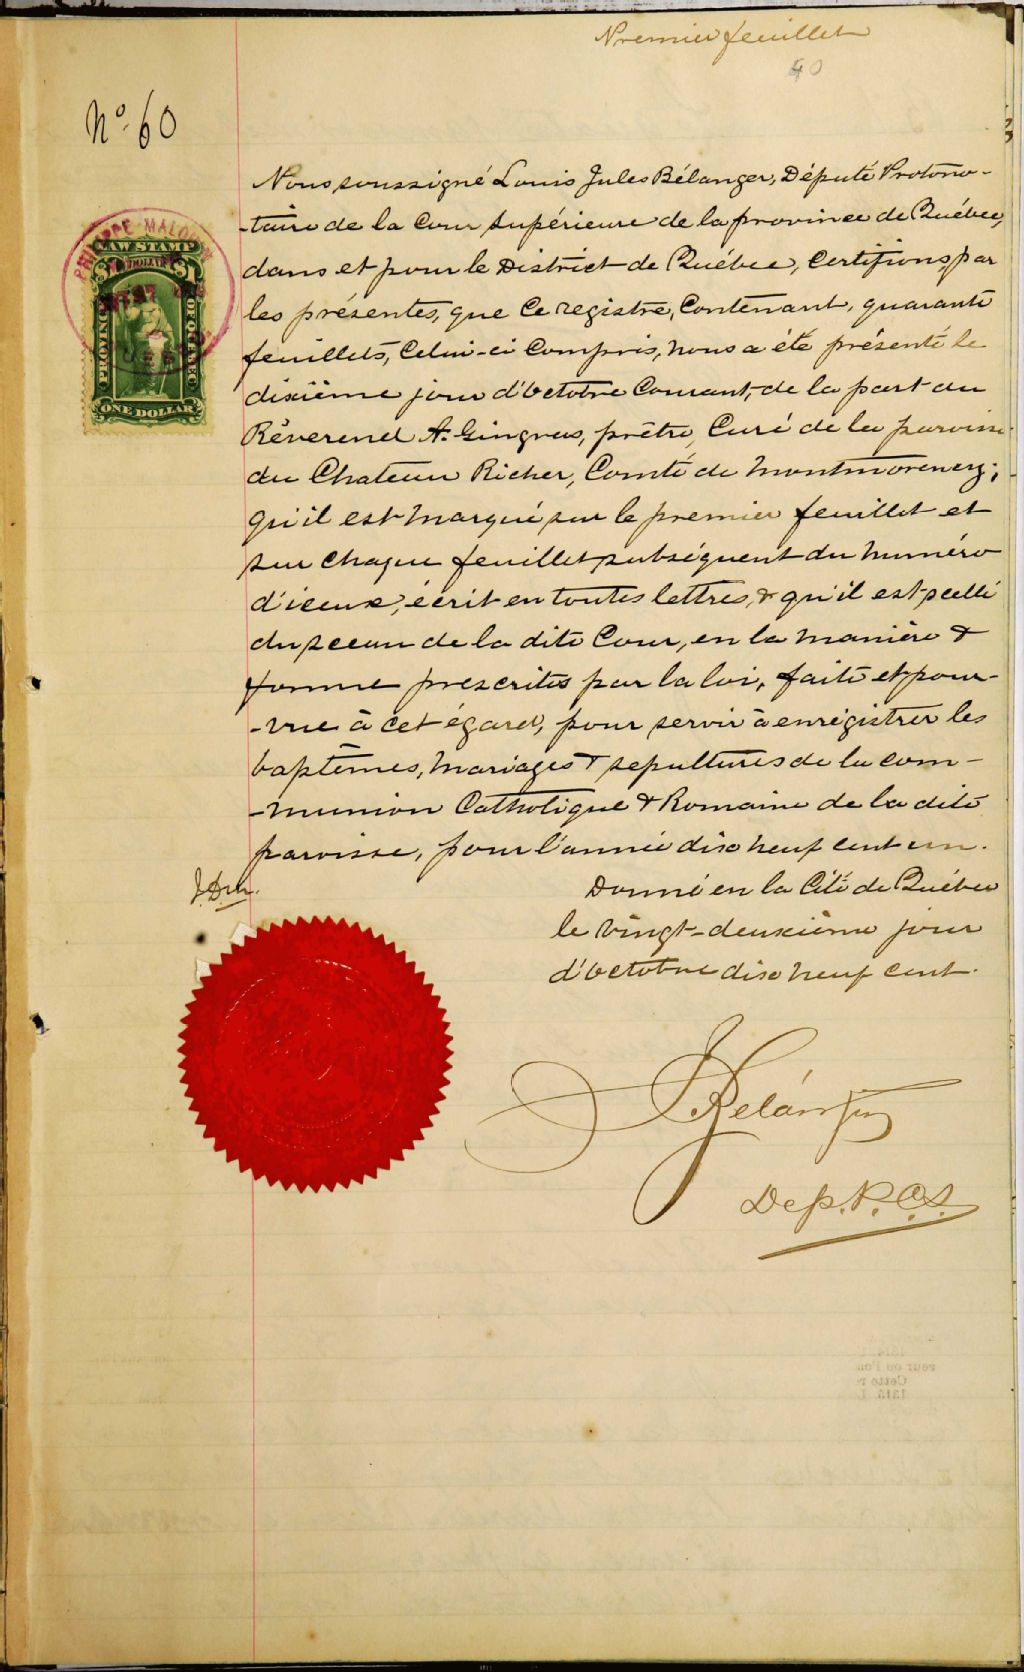 Premier feuillet
40
No. 60
Nous soussigné Louis Jules Bélanger, Député Protono-
-taire de la Cour Supérieure de la province de Québec,
dans et pour le District de Québec, Certifions, par
les présentes, que ce registre, contenant, quarante
feuillets, celui-ci compris, nous a été présenté le
dixième jour d'octobre courant, de la part du
Réverend A. Gingras, prêtre, Curé de la paroisse
du Chateau Richer, Comté de Montmorency;
qu'il est marqué sur le premier feuillet et
sur chaque feuillet subséquent du numéro
d'iceux, écrit en toutes lettres, & qu'il est scellé
du sceau de la dite Cour, en la manière &
forme prescrites par la loi, faite et pour-
-vue à cet égard, pour servir à enrégistrer les
baptêmes, mariages & sepultures de la com-
-munion Catholique & Romaine de la dite
paroisse, pour l'année dix neuf cent un.
Donné en la Cité de Québec
le vingt-deuxième jour
d'octobre dix neuf cent.
Bélanger
Dep. P. C. S.
PHILIPPE MALOUIN
LAW STAMP
PROVINCE
OF QUEBEC
ONE DOLLAR